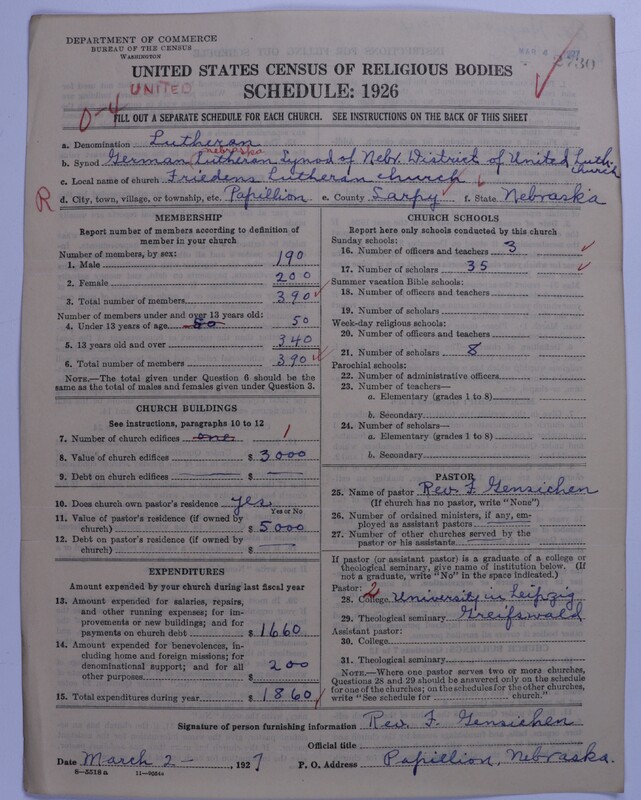 DEPARTMENT OF COMMERCE
BUREAU OF THE CENSUS
WASHINGTON
2730
UNITED STATES CENSUS OF RELIGIOUS BODIES
UNITED
SCHEDULE: 1926
0-4
FILL OUT A SEPARATE SCHEDULE FOR EACH CHURCH. SEE INSTRUCTIONS ON THE BACK OF THIS SHEET
a. Denomination Lutheran
nebraska
b. Synod German Lutheran Synod of Nebr. District of United Luth. Church
c. Local name of church Friedens Lutheran church
R d. City, town, village, or township, etc. Papillion e. County Sarpy f. State Nebraska
MEMBERSHIP
Report number of members according to definition of member in your church
Number of members, by sex:
1. Male 190
2. Female 200
3. Total number of members 390
Number of members under and over 13 years old:
4. Under 13 years of age 50 50
5. 13 years old and over 340
6. Total number of members 390
NOTE.—The total given under Question 6 should be
same as the total of males and females given under Question 3.
CHURCH BUILDINGS
See instructions, paragraphs 10 to 12
7. Number of church edifices one 1
8. Value of church edifices $ 3000
9. Debt on church edifices $ —
10. Does church own pastor's residence yes
Yes or No
11. Value of pastor's residence (if owned by
church) $ 5000
12. Debt on pastor's residence (if owned by
church) $ —
EXPENDITURES
Amount expended by your church during last fiscal year
13. Amount expended for salaries, repairs,
and other running expenses; for im-
provements or new buildings; and for
payments on church debt $ 1660
14. Amount expended for benevolences, in-
cluding home and foreign missions; for
denominational support; and for all
other purposes $ 200
15. Total expenditures during year $ 1860
CHURCH SCHOOLS
Report here only schools conducted by this church
Sunday schools:
16. Number of officers and teachers 3
17. Number of scholars 35
Summer vacation Bible schools:
18. Number of officers and teachers
19. Number of scholars
Week-day religious schools:
20. Number of officers and teachers
21. Number of scholars 8
Parochial schools:
22. Number of administrative officers
23. Number of teachers—
a. Elementary (grades 1 to 8)
b. Secondary
24. Number of scholars—
a. Elementary (grades 1 to 8)
b. Secondary
PASTOR
25. Name of pastor Rev. F. Gensichen
(If church has no pastor, write "None")
26. Number of ordained ministers, if any, em-
ployed as assistant pastors
27. Number of other churches served by the
pastor or his assistants
If pastor (or assistant pastor) is a graduate of a college or
theological seminary, give name of institution below. (If
not a graduate, write "No" in the space indicated.)
Pastor: 2
28. College University in Leipzig
29. Theological seminary Greifswald
Assistant pastor:
30. College
31. Theological seminary
NOTE.—Where one pastor serves two or more churches,
Questions 28 and 29 should be answered only on the schedule
for one of the churches; on the schedules for the other churches,
write "See schedule for church."
Signature of person furnishing information Rev. F. Gensichen
Official title
Date March 2 —, 1927 P. O. Address Papillion, Nebraska.
8—5518a 11—9084a